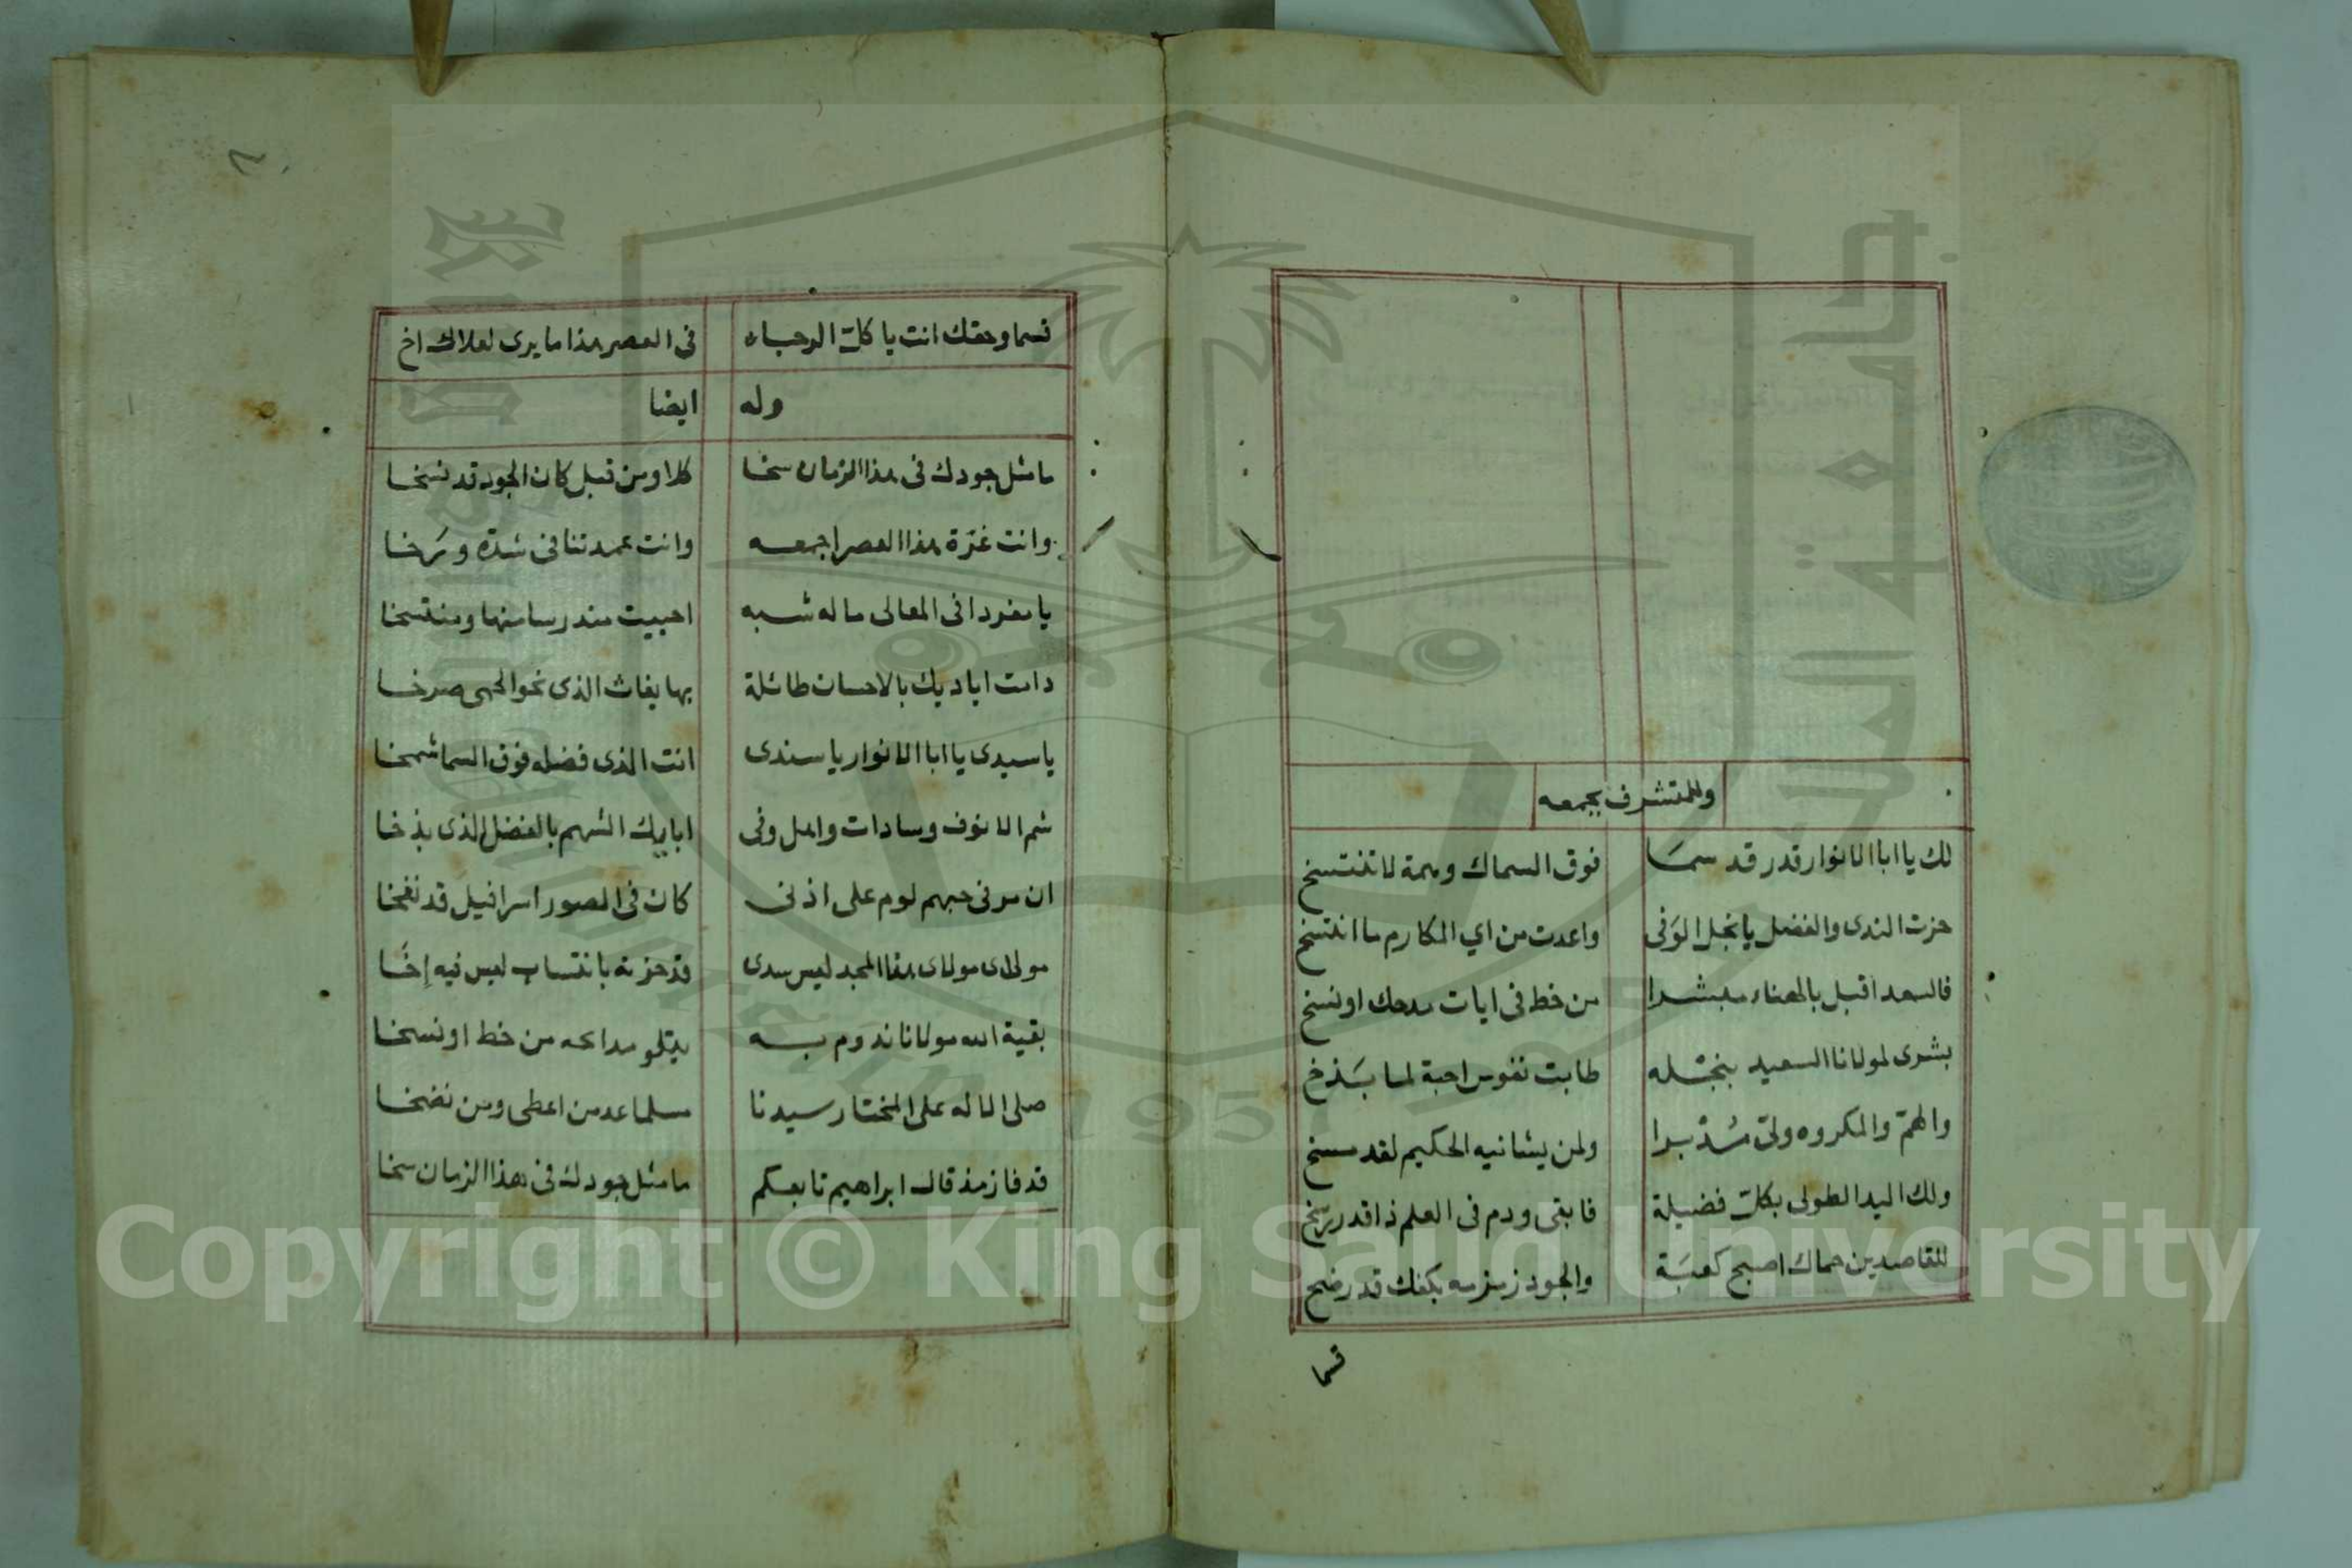 وللمتشرف بجمعه
لك يا ابا الانوار قدر قد سما فوق السماك وهمة لا تنتسخ
حزت الندى والفضل يا نجل الوفى واعدت من اي المكارم ما انتسخ
فالسعد اقبل بالهناء مبشرا من خط فى ايات مدحك او نسخ
بشرى لمولانا السعيد بنجله طابت نفوس احبة لما بذخ
والهم والمكروه ولى مدبرا ولمن يشانيه الحكيم لقد مسخ
ولك اليد الطولى بكل فضيلة فابقى ودم فى العلم ذا قدر رسخ
للقاصدين حماك اصبح كعبة والجود زمزمه بكفك قد رضخ
قسما
قسما وحقك انت يا كل الرجاء فى العصر هذا ما يرى لعلاك اخ
وله ايضا
ما مثل جودك فى هذا الزمان سخا كلا ومن قبل كان الجود قد نسخا
وانت غرة هذا العصر اجمعه وانت عمدتنا فى شدة ورخا
يا مفردا فى المعالى ما له شبه احييت مندرسا منها ومنتسخا
دامت اياديك بالاحسان طائلة بها يغاث الذى نحو الحمى صرخا
يا سيدى يا ابا الانوار يا سندى انت الذى فضله فوق السما شمخا
شم الانوف وسادات واهل وفى ابايك الشهم بالفضل الذى بذخا
ان مر فى حبهم لوم على اذنى كان فى الصور اسرافيل قد نفخا
مولاى مولاى هذا المجد ليس سدى قد حزته بانتساب ليس فيه إخا
بقية الله مولانا ندوم به يتلو مدائحه من خط او نسخا
صلى الاله على المختار سيدنا مسلما عد من اعطى ومن نضخا
قد فاز مذ قال ابراهيم تابعكم ما مثل جودك فى هذا الزمان سخا
جامعة الملك سعود
1957
Copyright © King Saud University